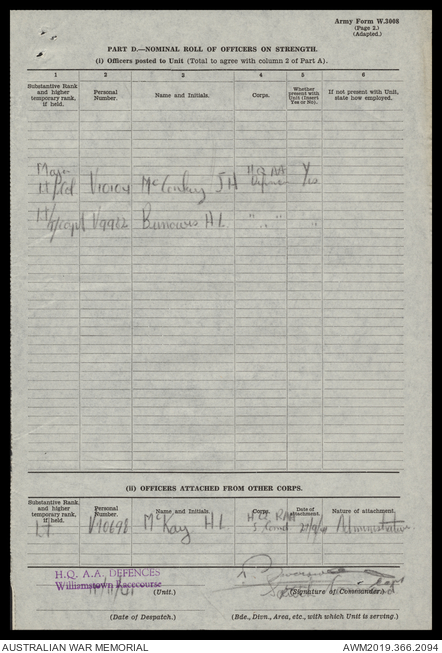 Army Form W.3008
(Page 2.)
(Adapted.)
PART D.—NOMINAL ROLL OF OFFICERS ON STRENGTH.
(i) Officers posted to Unit (Total to agree with column 2 of Part A).
1 2 3 4 5 6
Substantive Rank and higher temporary rank, if held. Personal Number. Name and Initials. Corps. Whether present with Unit (Insert Yes or No). If not present with Unit, state how employed.
Major
Lt/Col V10104 McConkey J H H Q AA Yes
Lt/ T/Capt V9922 Burrows H L " " " "
(ii) OFFICERS ATTACHED FROM OTHER CORPS.
Substantive Rank and higher temporary rank, if held. Personal Number. Name and Initials. Corps. Date of attachment. Nature of attachment.
Lt V10698 McKay H L Administrative
H.Q. A.A. DEFENCES
Williamstown Racecourse
(Unit.) (Signature of Commander.)
(Date of Despatch.) (Bde., Divn., Area, etc., with which Unit is serving.)
AUSTRALIAN WAR MEMORIAL AWM2019.366.2094